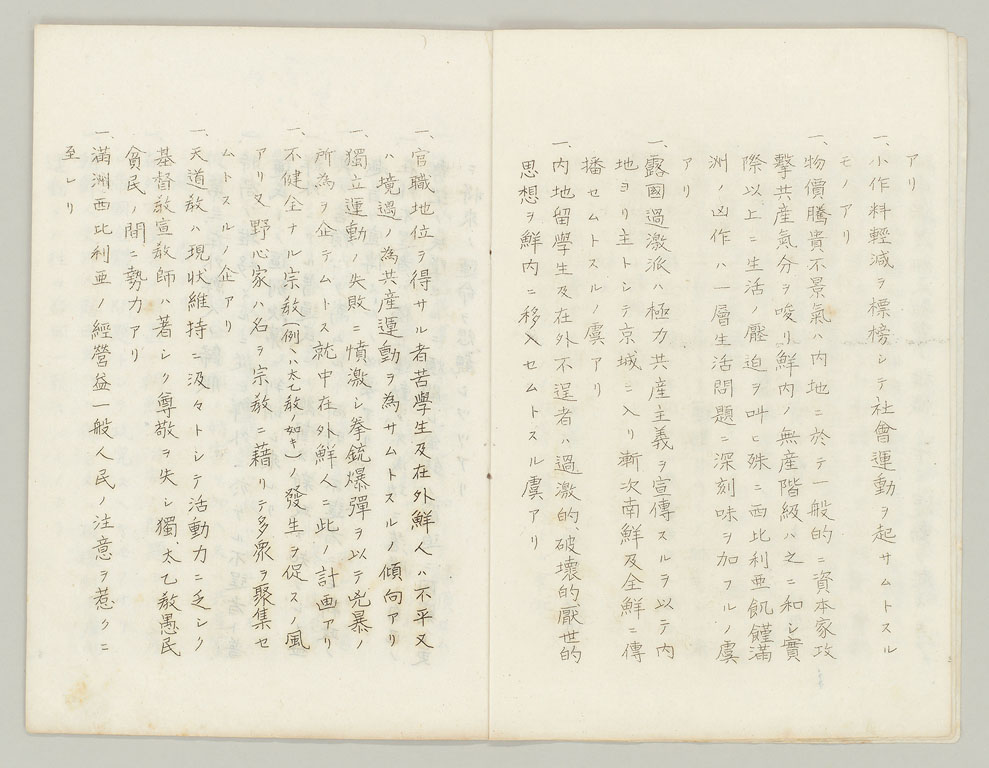 アリ
一、小作料輕減ヲ標榜シテ社會運動ヲ起サムトスル
モノアリ
一、物價騰貴不景氣ハ内地ニ於テ一般的ニ資本家攻
擊共産氣分ヲ唆リ鮮内ノ無産階級ハ之ニ和シ實
際以上ニ生活ノ壓迫ヲ叫ヒ殊ニ西比利亜飢饉滿
洲ノ凶作ハ一層生活問題ニ深刻味ヲ加フルノ虞
アリ
一、露國過激派ハ極力共産主義ヲ宣傳スルヲ以テ内
地ヨリ主トシテ京城ニ入リ漸次南鮮及全鮮ニ傳
播セムトスルノ虞アリ
一、内地留學生及在外不逞者ハ過激的、破壊的、厭世的
思想ヲ鮮内ニ移入セムトスル虞アリ
一、官職地位ヲ得サル者苦學生及在外鮮人ハ不平又
ハ境遇ノ為共産運動ヲ為サムトスルノ傾向アリ
一、獨立運動ノ失敗ニ憤激シ拳銃爆彈ヲ以テ兇暴ノ
所為ヲ企テムトス就中在外鮮人ニ此ノ計画アリ
一、不健全ナル宗教(例ハ太乙教ノ如キ)ノ發生ヲ促スノ風
アリ又野心家ハ名ヲ宗教ニ藉リテ多衆ヲ聚集セ
ムトスルノ企アリ
一、天道教ハ現状維持ニ汲々トシテ活動力ニ乏シク
基督教宣教師ハ著シク尊敬ヲ失シ獨、太乙教愚民
貧民ノ間ニ勢力アリ
一、滿洲西比利亜ノ經營益一般人民ノ注意ヲ惹クニ
至レリ